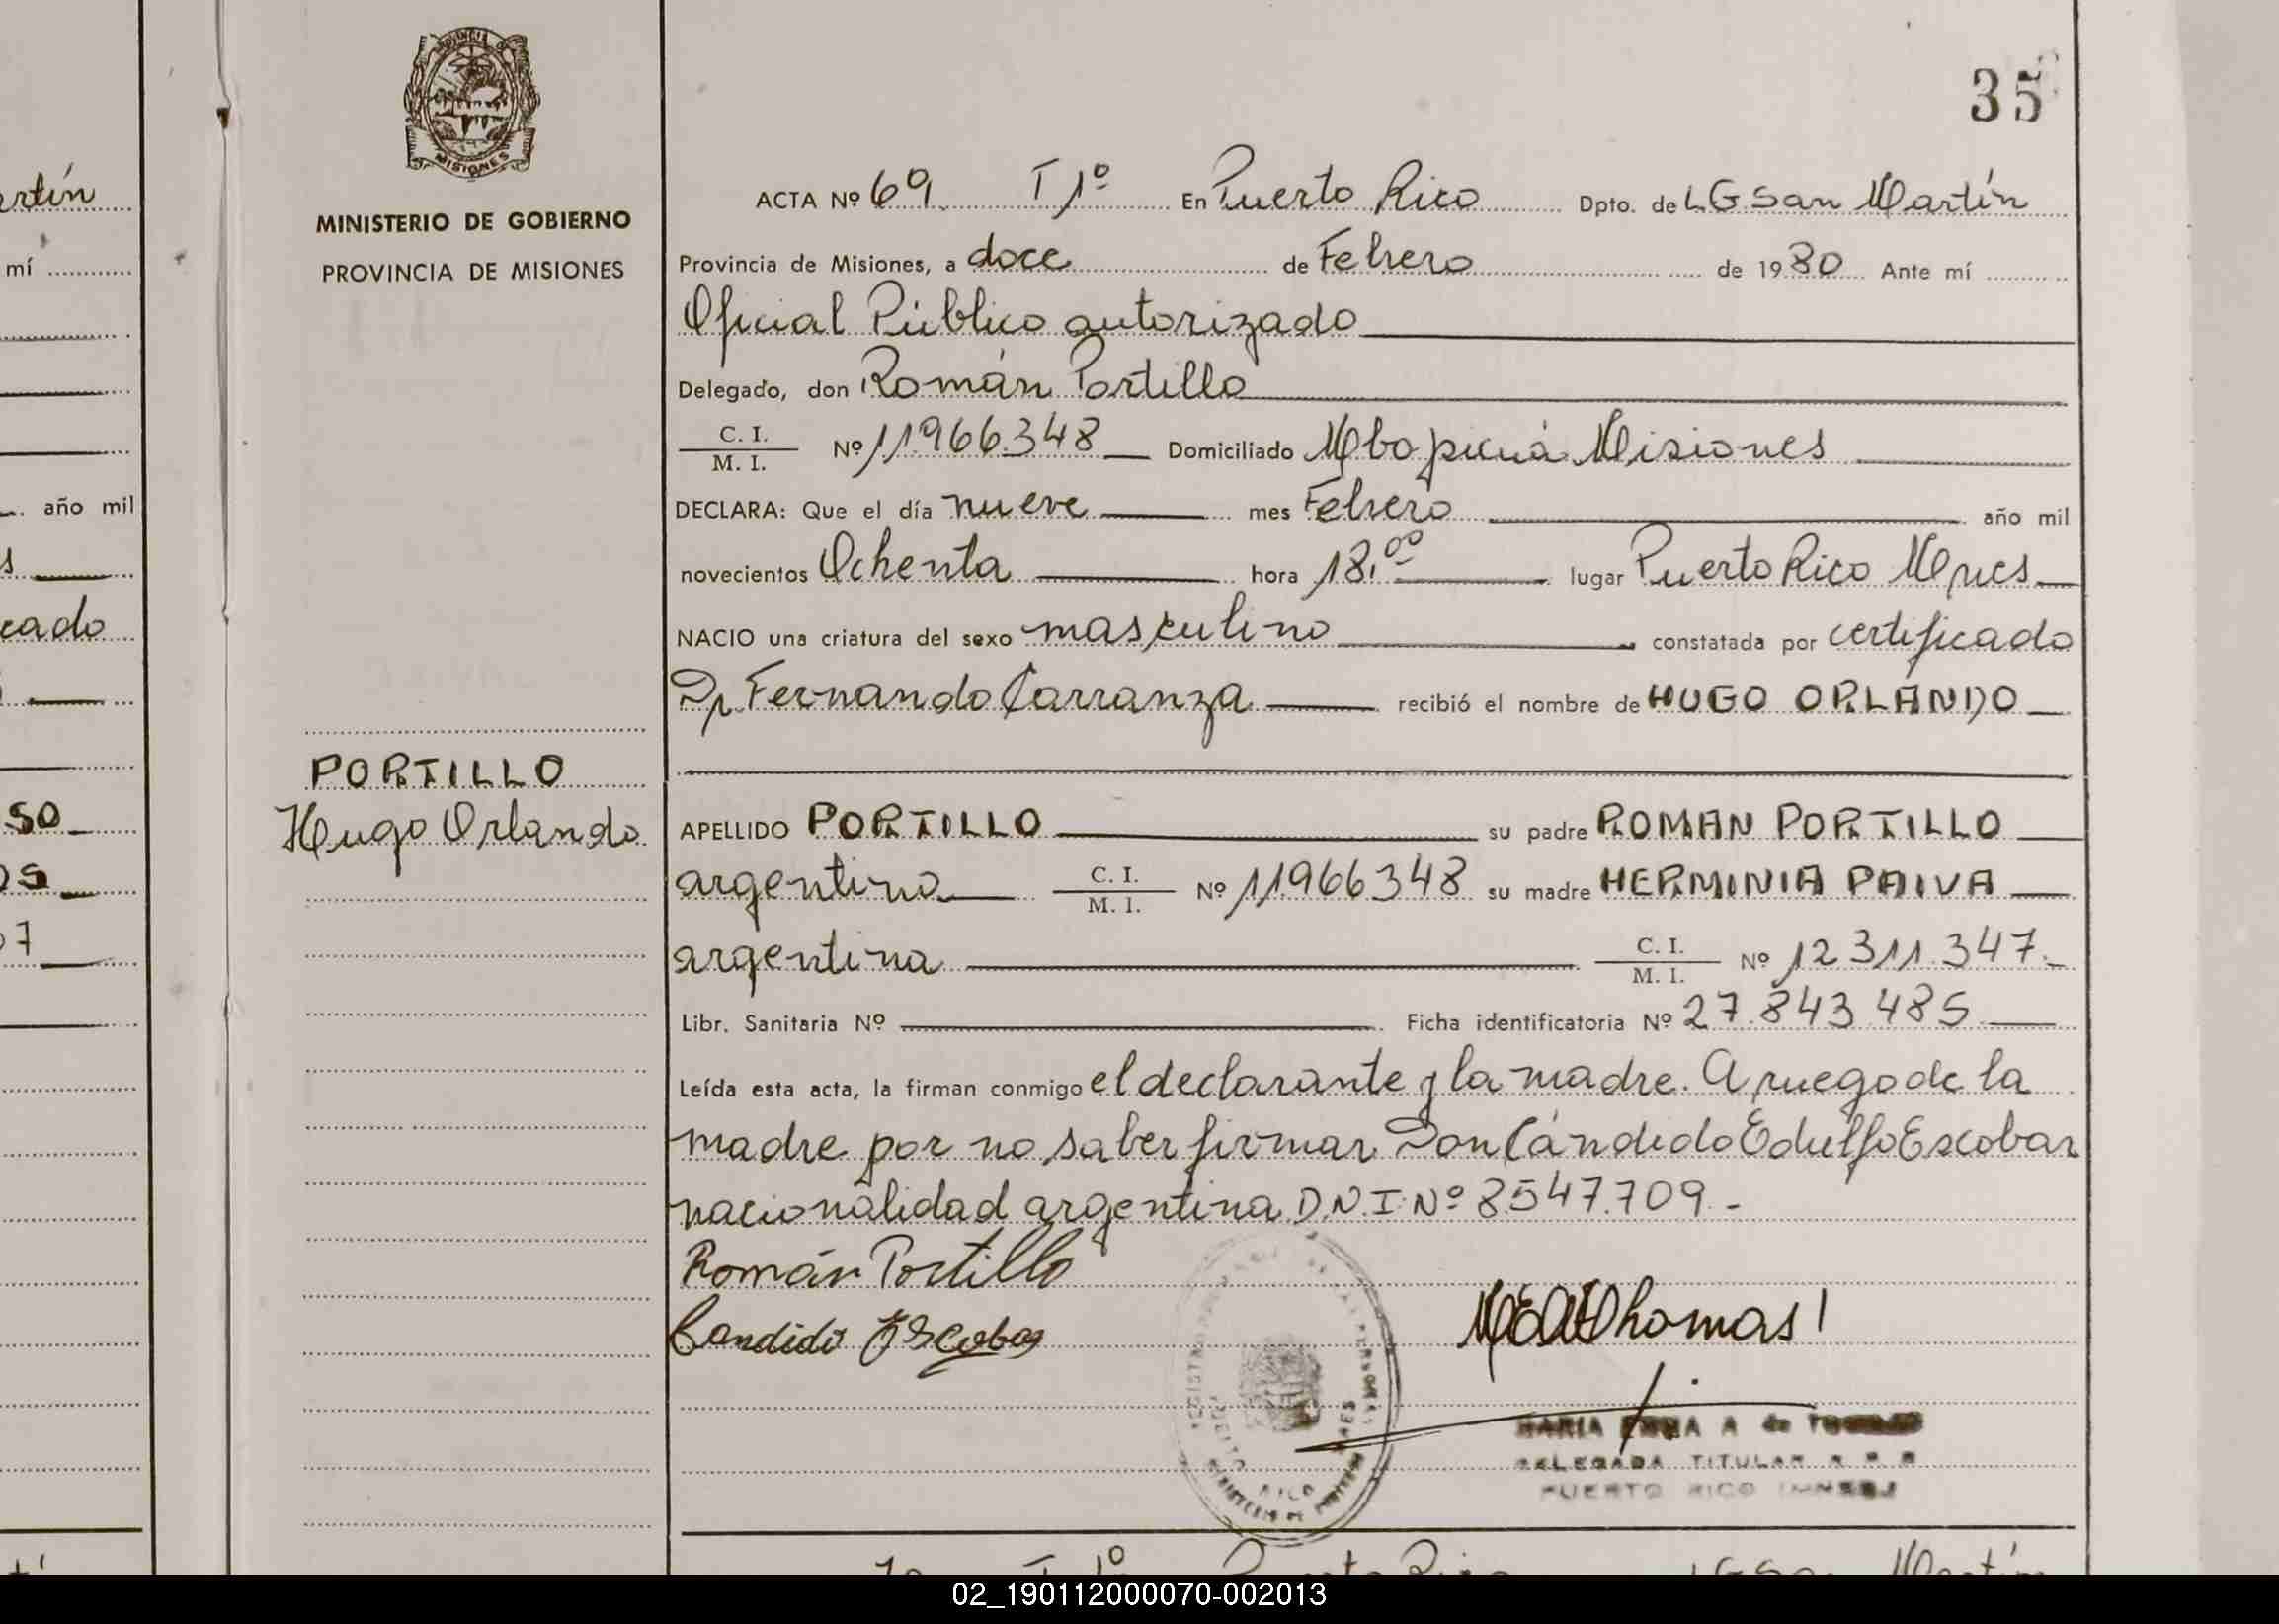 PROVINCIA DE
MISIONES
MINISTERIO DE GOBIERNO
PROVINCIA DE MISIONES
PORTILLO
Hugo Orlando
35
ACTA Nº 69 T 1º En Puerto Rico Dpto. de L G San Martín
Provincia de Misiones, a doce de Febrero de 1980 Ante mí
Oficial Público autorizado
Delegado, don Román Portillo
C. I. / M. I. Nº 11966.348 Domiciliado Mbopicuá Misiones
DECLARA: Que el día nueve mes Febrero año mil
novecientos Ochenta hora 18.00 lugar Puerto Rico Mnes
NACIO una criatura del sexo masculino constatada por certificado
Dr Fernando Carranza recibió el nombre de HUGO ORLANDO
APELLIDO PORTILLO su padre ROMAN PORTILLO
argentino C. I. / M. I. Nº 11966348 su madre HERMINIA PAIVA
argentina C. I. / M. I. Nº 12311.347.-
Libr. Sanitaria Nº Ficha identificatoria Nº 27.843.485
Leída esta acta, la firman conmigo el declarante y la madre. A ruego de la
madre por no saber firmar Don Cándido Edulfo Escobar
nacionalidad argentina D.N.I. Nº 8547.709.-
Román Portillo
Candido Escobar
MEAThomas
MARIA EMMA A de
DELEGADA TITULAR
PUERTO RICO
rtín
mí
año mil
s
cado
so
os
07
Puerto Rico L G San Martín
02_190112000070-002013